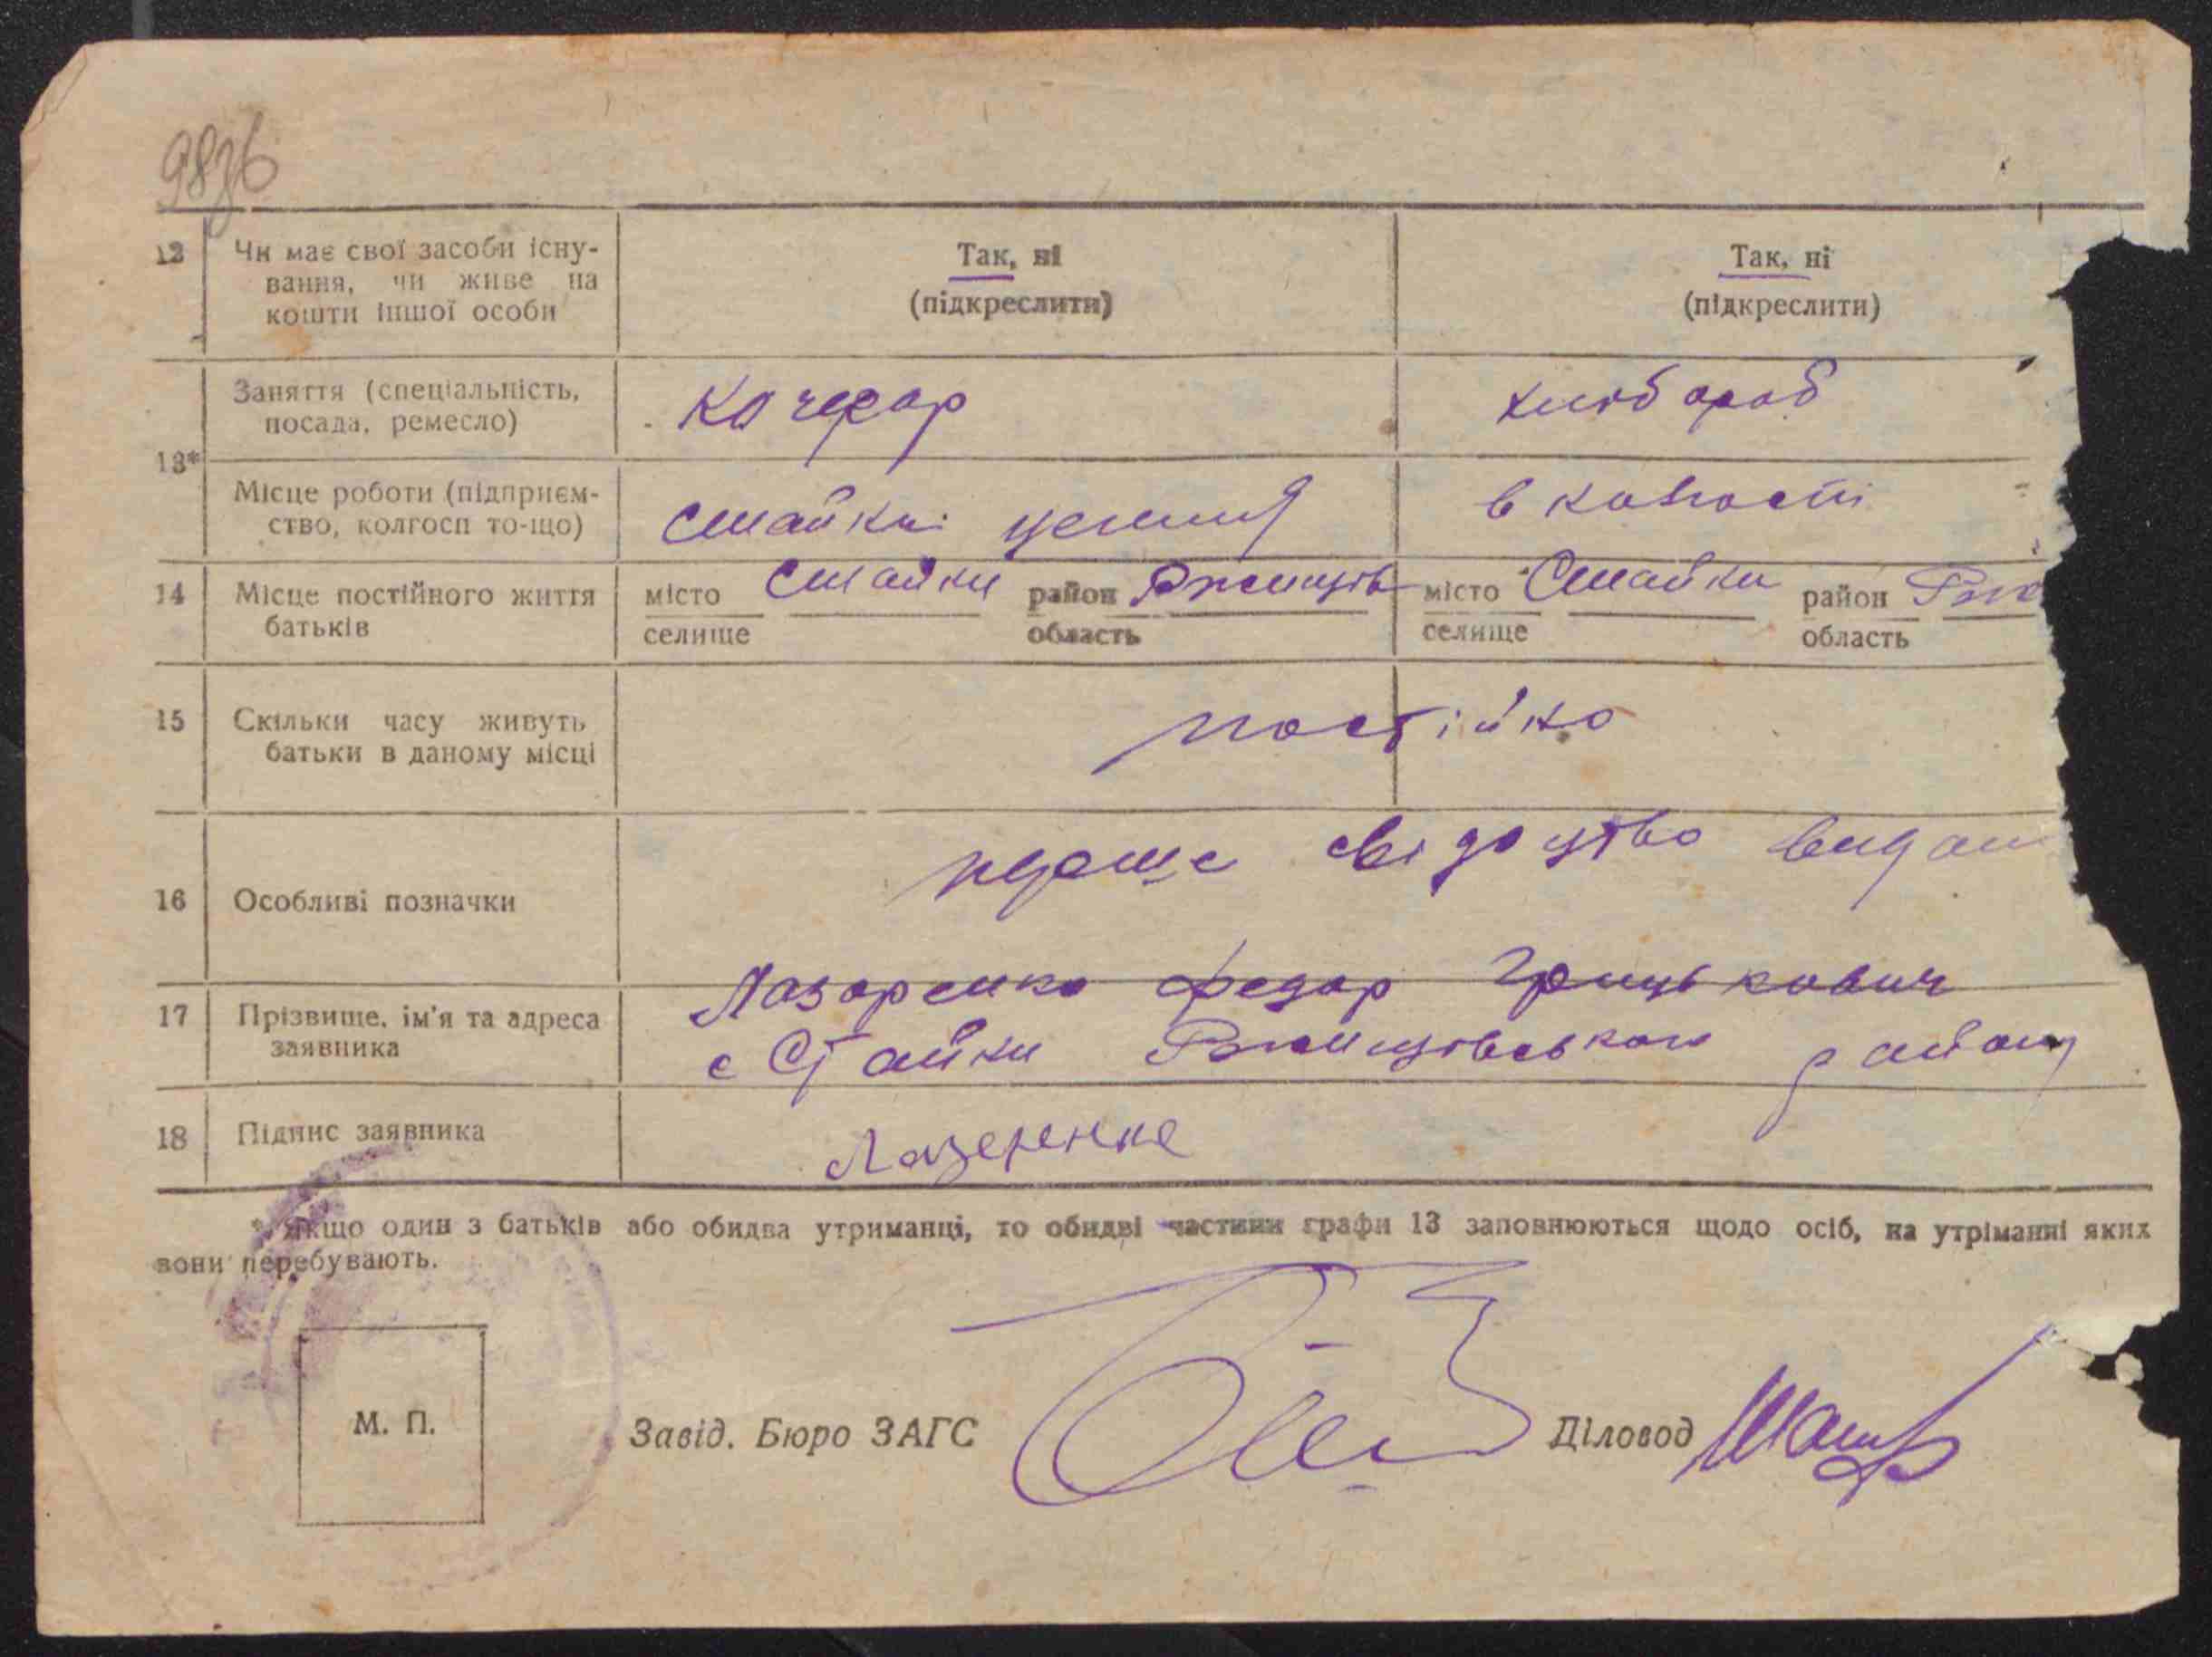 12 Чи має свої засоби існу-
вання, чи живе на
кошти іншої особи
Так, ні
(підкреслити)
Так, ні
(підкреслити)
13*
Заняття (спеціальність,
посада, ремесло)
Кочегар
хлібороб
Місце роботи (підприєм-
ство, колгосп то-що)
Стайки
в колгоспі
14 Місце постійного життя
батьків
місто Стайки район Ржищів
селище область
місто Стайки район Рж
селище область
15 Скільки часу живуть
батьки в даному місці
постійно
16 Особливі позначки
перше свідоцтво видан
17 Прізвище, ім'я та адреса
заявника
Лазаренко Федор Грицькович
с Стайки Ржищівського району
18 Підпис заявника
Лазеренко
* Якщо один з батьків або обидва утриманці, то обидві частини графи 13 заповнюються щодо осіб, на утріманні яких
вони перебувають.
М. П.
Завід. Бюро ЗАГС
Діловод